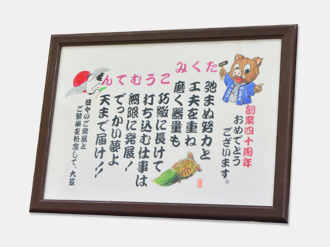 たくみこうむてん
創業四十周年
おめでとう
ございます。
弛まぬ努力と
工夫を重ね
磨く器量も
巧緻に長けて
打ち込む仕事は
無限に発展！
でっかい夢よ
天まで届け!!
益々のご発展と
ご繁栄を祈念して、